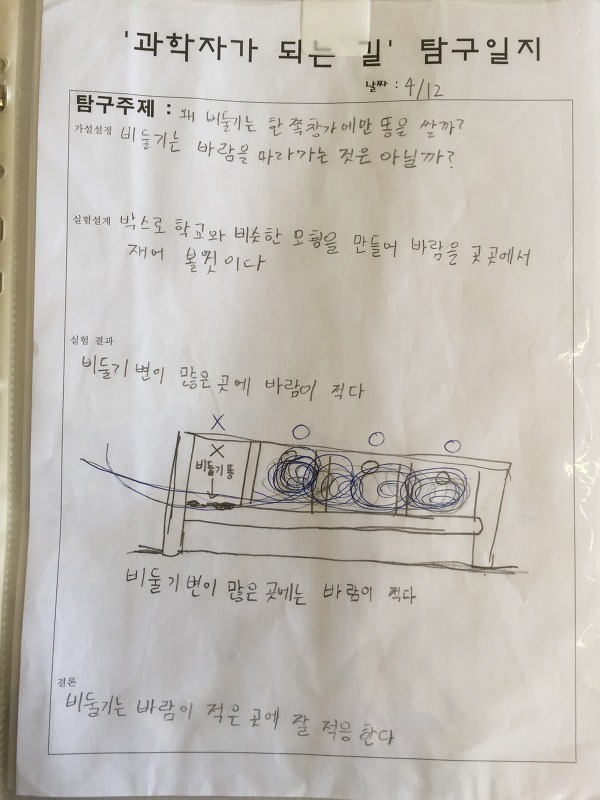 '과학자가 되는 길' 탐구일지
날짜 : 4/12
탐구주제 : 왜 비둘기는 한 쪽창가에만 똥을 쌀까?
가설설정 비둘기는 바람을 따라가는 것은 아닐까?
실험설계 박스로 학교와 비슷한 모형을 만들어 바람을 곳곳에서
재어 볼것이다
실험 결과
비둘기 변이 많은 곳에 바람이 적다
X
X
비둘기 똥
비둘기 변이 많은 곳에는 바람이 적다
결론
비둘기는 바람이 적은 곳에 잘 적응 한다